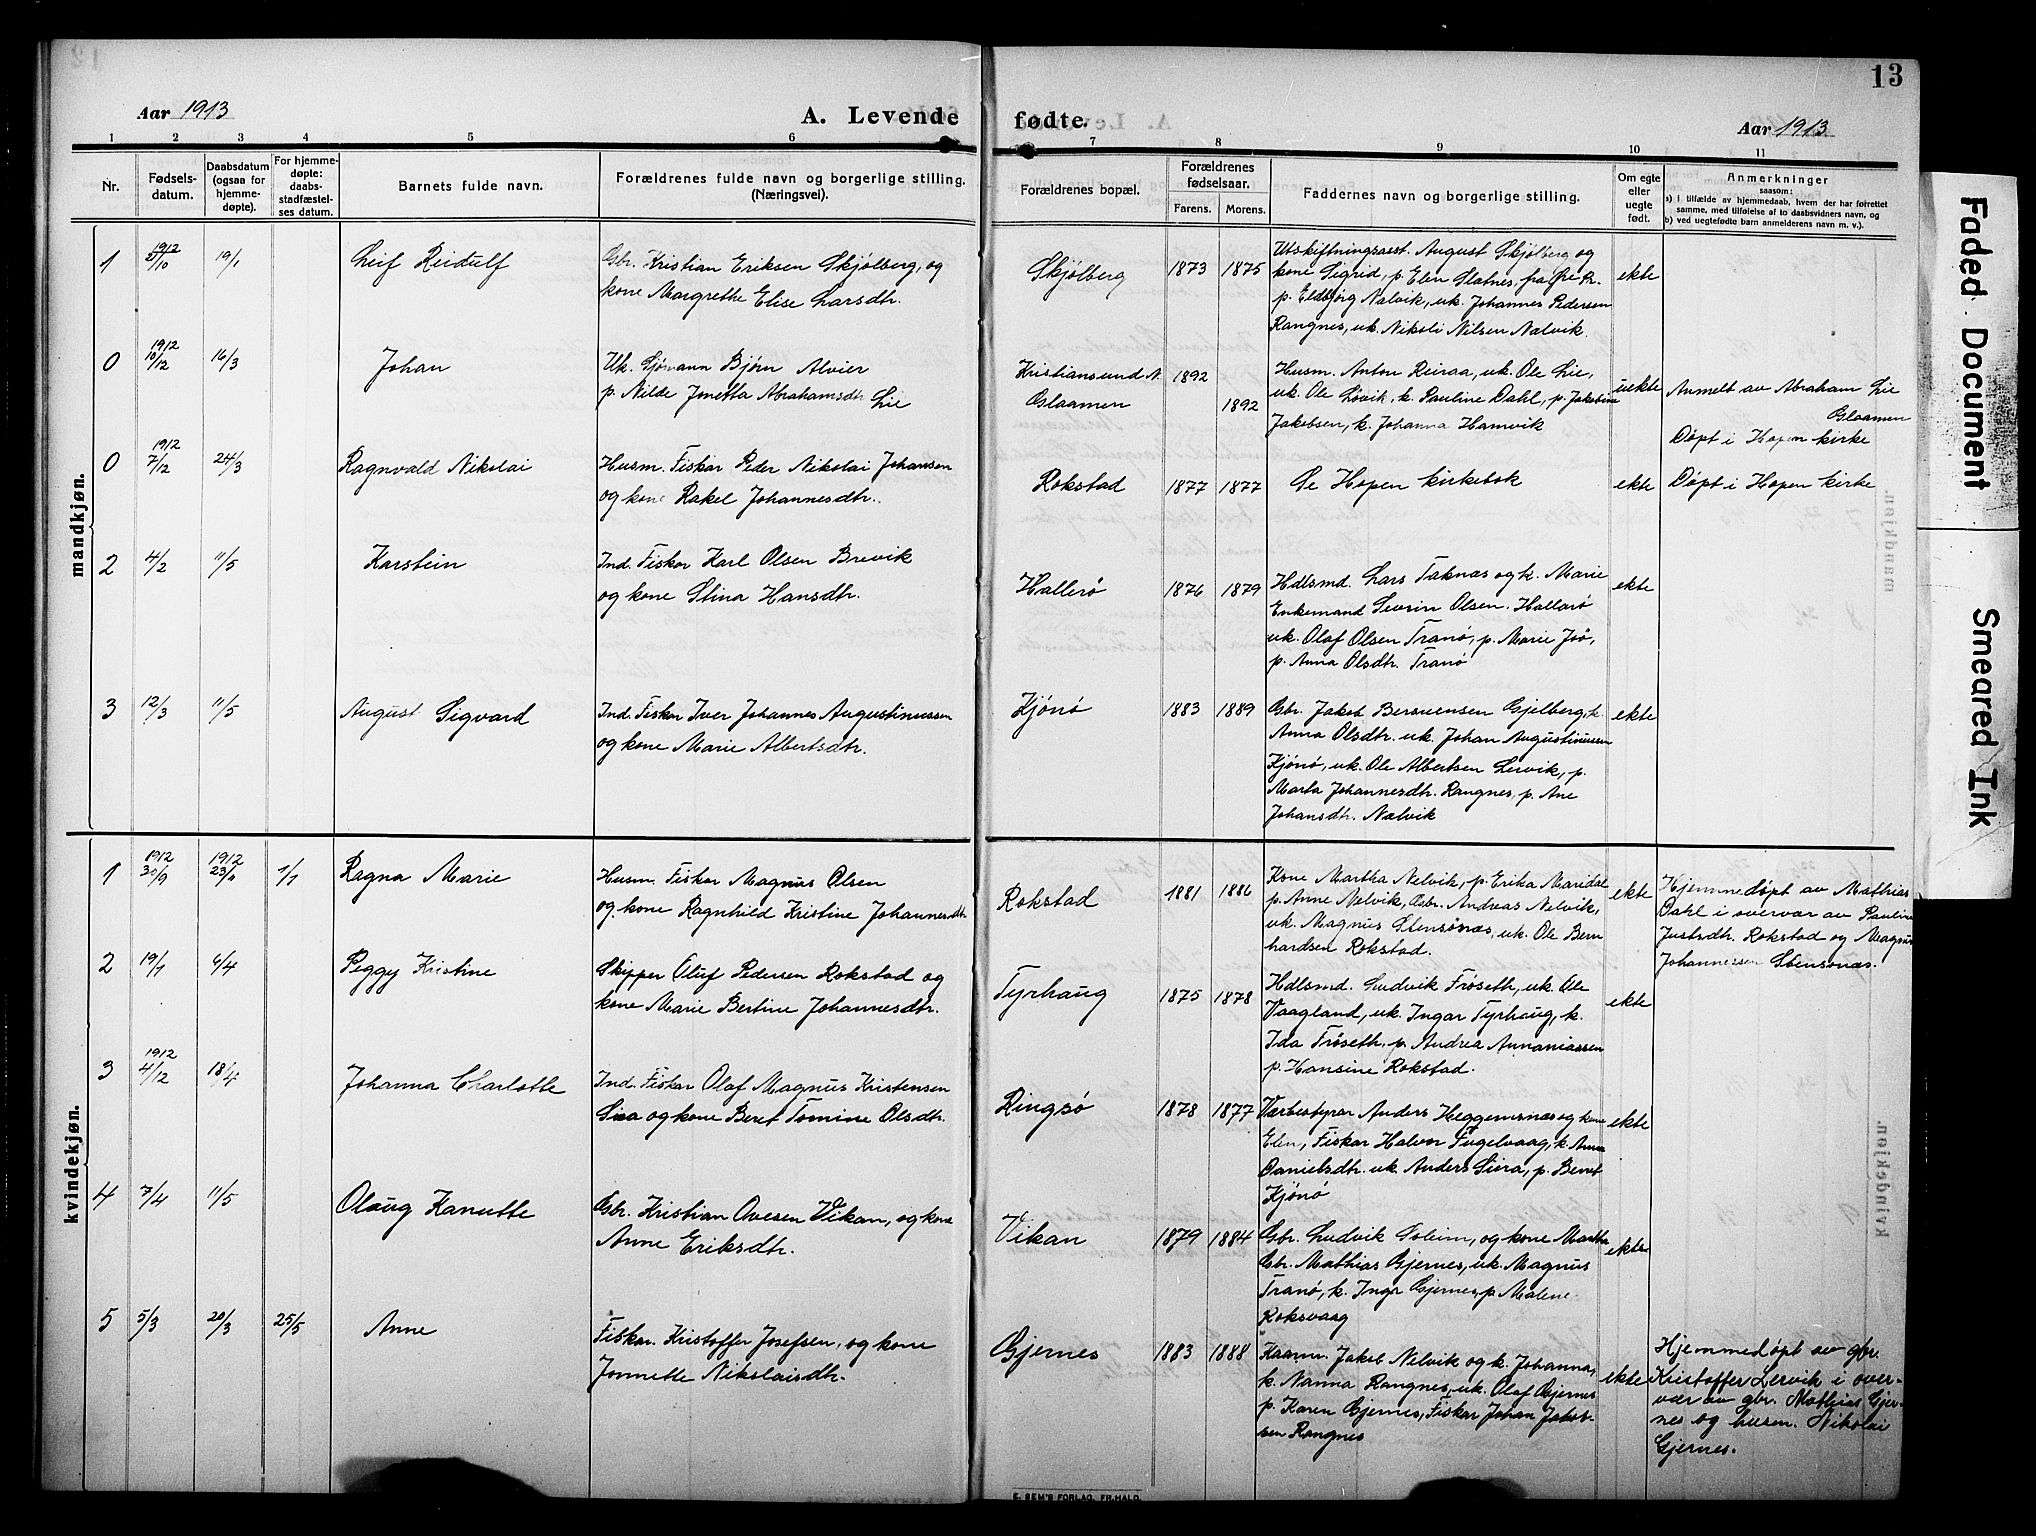 13
Aar 1913
A. Levende fødte.
Aar 1913
1 2 3 4 5 6 7 8 9 10 11
Nr.
Fødsels-
datum.
Daabsdatum
(ogsaa for
hjemme-
døpte).
For hjemme-
døpte:
daabs-
stadfæstel-
ses datum.
Barnets fulde navn.
Forældrenes fulde navn og borgerlige stilling.
(Næringsvei).
Forældrenes bopæl.
Forældrenes
fødselsaar.
Farens. Morens.
Faddernes navn og borgerlige stilling.
Om egte
eller
uegte
født.
Anmerkninger
saasom:
a) i tilfælde av hjemmedaab, hvem der har forrettet
samme, med tilføielse af to daabsvidners navn, og
b) ved uegtefødte barn anmelderens navn m. v.).
mandkjøn.
1
1912
5/10
19/1
Leif Reidulf
Gbr. Kristian Eriksen Skjølberg, og
kone Margrethe Elise Larsdtr.
Skjølberg
1873 1875
Utskiftningsasst. August Skjølberg og
kone Sigrid, p. Elen Slatnes,
p. Eldbjørg Nælvik, uk. Johannes Pedersen
Rangnes, uk. Nikoli Nilsen Nælvik.
ekte
0
1912
10/12
16/3
Johan
Uk. Sjømann Bjørn Alvier
p. Nilde Jonetta Abrahamsdtr Lie
Kristiansund N.
Glaamen
1892
1892
Husm. Anton Reiraa, uk. Ole Lie,
uk. Ole Løvik, k. Pauline Dahl, p. Jakobine
Jakobsen, k. Johanna Hamvik
uekte
Anmelt av Abraham Lie
Glaamen
Døpt i Hopen kirke
0
1912
7/12
24/3
Ragnvald Nikolai
Husm. Fisker Peder Nikolai Johansen
og kone Rakel Johannesdtr.
Rokstad
1877 1877
Se Hopen kirkebok
ekte
Døpt i Hopen kirke
2
4/2
11/5
Karstein
Ind. Fisker Karl Olsen Brevik
og kone Stina Hansdtr.
Hallerø
1876 1879
Hdlsmd. Lars Taknæs og k. Marie
Enkemand Severin Olsen Hallerø
uk. Olaf Olsen Tranø, p. Marie Jøø,
p. Anna Olsdtr. Tranø
ekte
3
12/3
11/5
August Sigvard
Ind. Fisker Iver Johannes Augustinussen
og kone Marie Albertsdtr.
Kjønø
1883 1889
Gbr. Jakob Bersvensen Gjelberg, k.
Anna Olsdtr. uk. Johan Augustinussen
Kjønø, uk. Ole Albertsen Lervik, p.
Marta Johannesdtr. Rangnes, p. Ane
Johansdtr. Nælvik
ekte
kvindekjøn.
1
1912
30/9
1912
23/11
1/1
Ragna Marie
Husm. Fisker Magnus Olsen
og kone Ragnhild Kristine Johannesdtr.
Rokstad
1881 1886
Kone Martha Nelvik, p. Erika Maridal
p. Anne Nelvik, Gbr. Andreas Nelvik,
uk. Magnus Stensønæs, uk. Ole Bern
hardsen Rokstad.
ekte
Hjemmedøpt av Mathias
Dahl i overvær av Pauline
Justsdtr. Rokstad og Magnus
Johannessen Stensønæs.
2
19/1
6/4
Peggy Kristine
Skipper Oluf Pedersen Rokstad og
kone Marie Bertine Johannesdtr.
Tyrhaug
1875 1878
Hdlsmd. Ludvik Frøseth, uk. Ole
Vaagland, uk. Ingar Tyrhaug, k.
Ida Frøseth, p. Andrea Annaniassen
p. Hansine Rokstad.
ekte
3
1912
4/12
18/4
Johanna Charlotte
Ind. Fisker Olaf Magnus Kristensen
Siea og kone Beret Tomine Olsdtr.
Ringsø
1878 1877
Værbestyrer Anders Heggemsnæs og kone
Elen, Fisker Halvor Fugelvaag, k. Anna
Danielsdtr. uk. Anders Siera, p. Beret
Kjønø
ekte
4
7/4
11/5
Olaug Kanutte
Gbr. Kristian Ovesen Vikan, og kone
Anne Eriksdtr.
Vikan
1879 1884
Gbr. Ludvik Soleim, og kone Martha
Gbr. Mathias Gjernes, uk. Magnus
Tranø, k. Inga Gjernes, p. Malene
Roksvaag
ekte
5
5/3
20/3
25/5
Anne
Fisker. Kristoffer Josefsen, og kone
Jonnette Nikolaisdtr.
Gjernes
1883 1888
Kaarm. Jakob Nelvik og k. Johanna,
k. Nanna Rangnes, uk. Olaf Gjernes
p. Karen Gjernes, Fisker Johan Jakob-
sen Rangnes
ekte
Hjemmedøpt av gbr.
Kristoffer Lervik i over-
vær av gbr. Mathias Gjer-
nes og husm. Nikolai
Gjernes.
E. SEM'S FORLAG, FR.HALD.
Faded Document
Smeared Ink